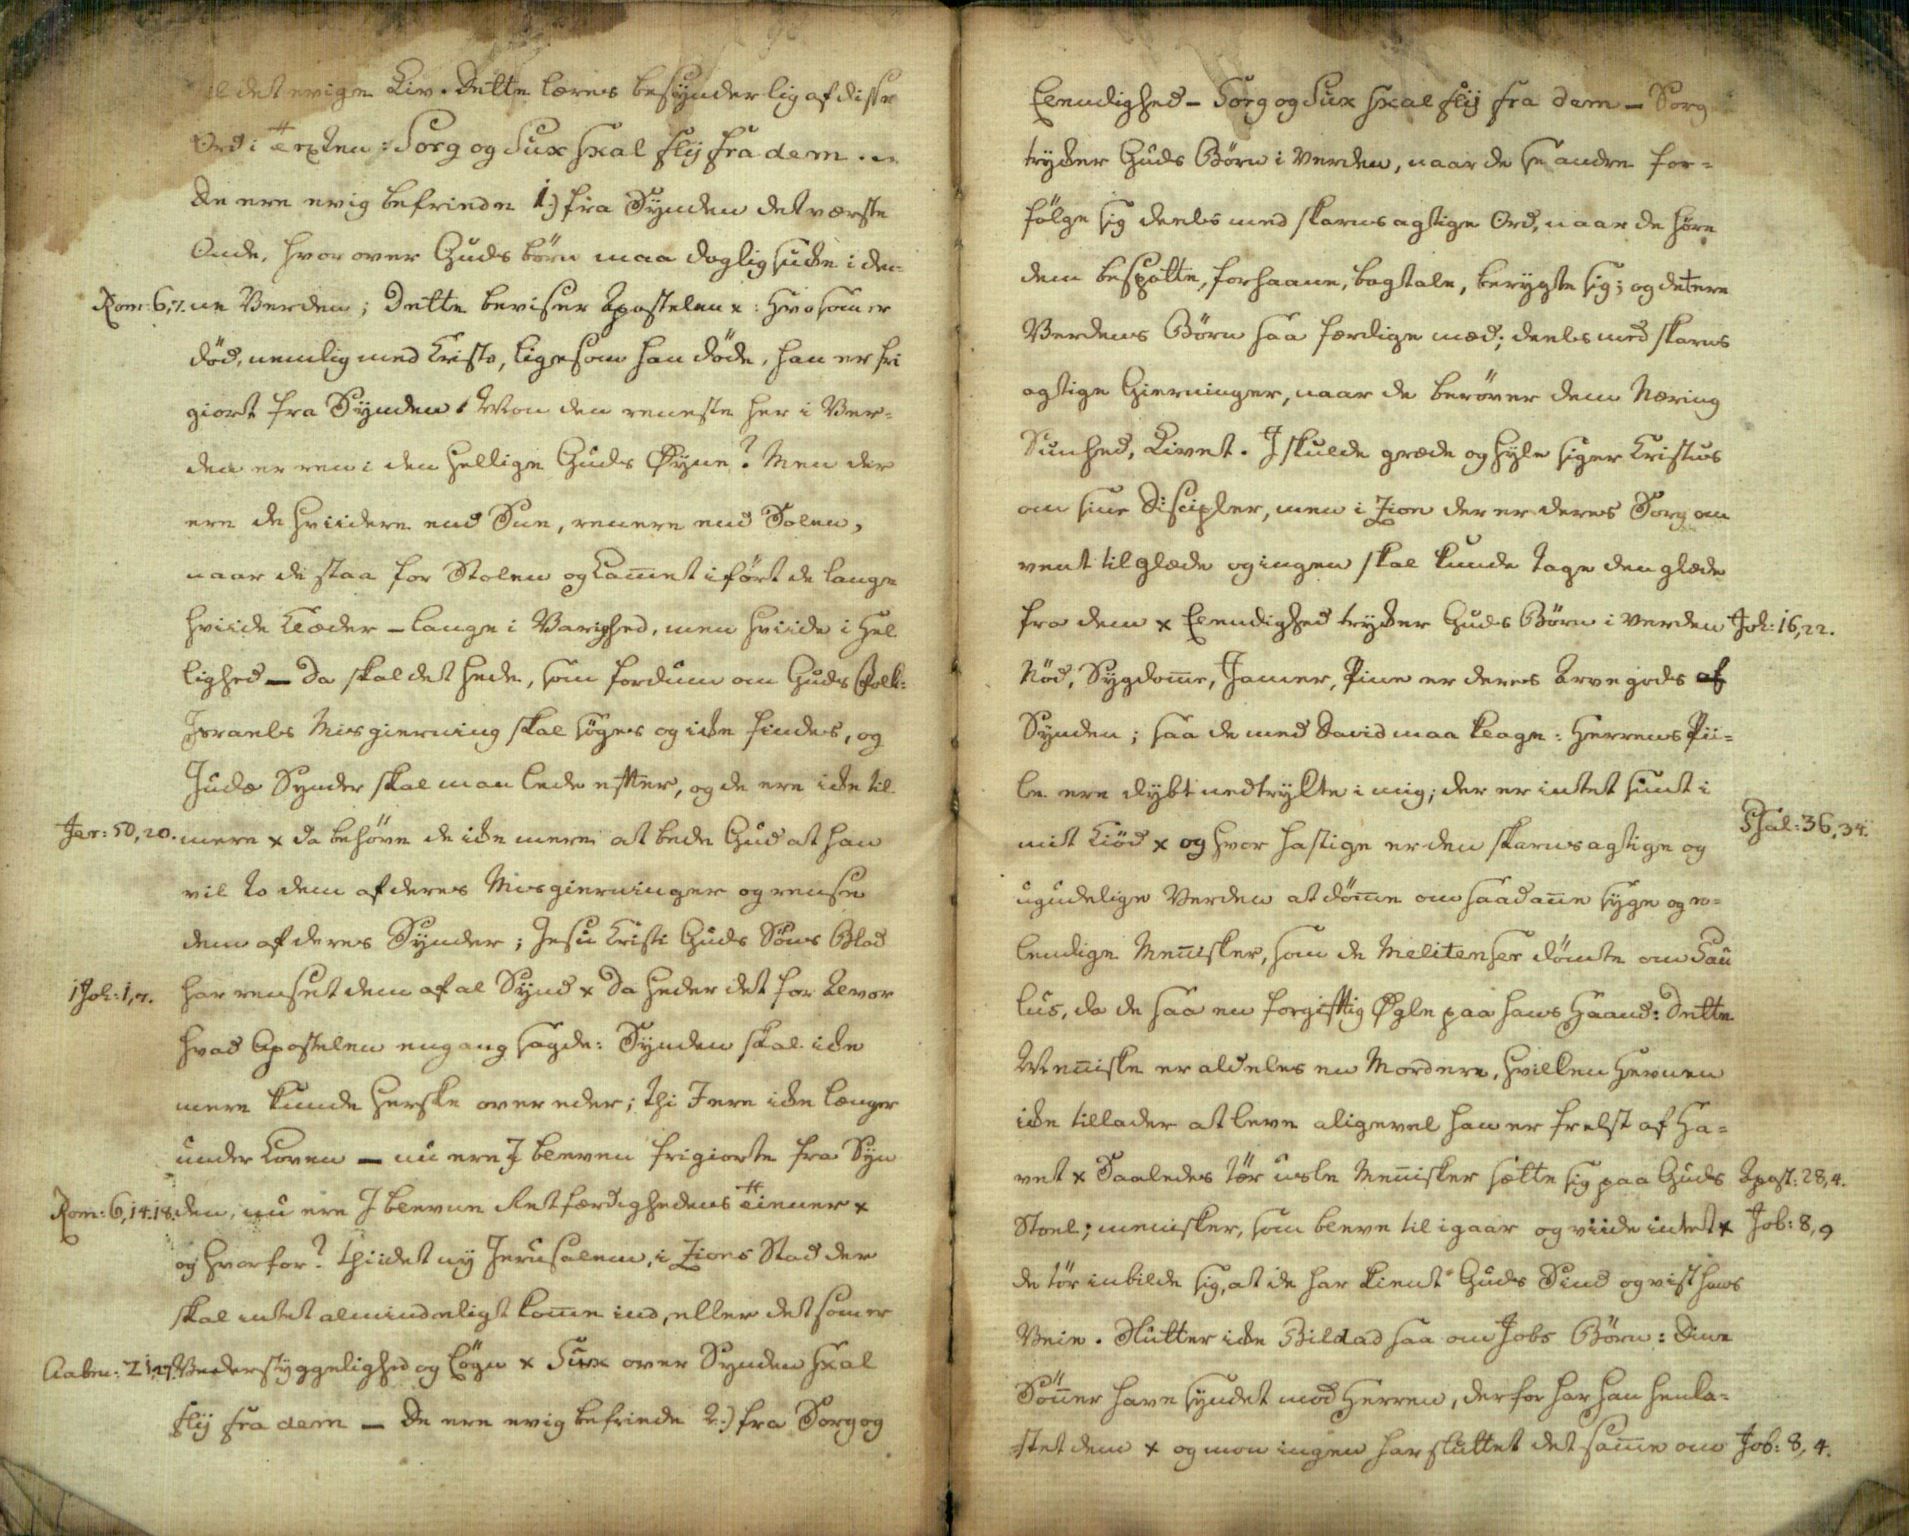 det evige Liv. Dette læres besÿnderlig af disse
Ord i Texten: Sorg og Suk skal flÿ fra dem.
De ere evig befriede 1.) fra Sÿnden det værste
Onde, hvor over Guds börn maa daglig sukke i den-
Rom: 6,7. ne Verden; Dette beviser Apostelen x: Hvo som er
död, nemlig med Kristo, ligesom han döde, han er fri
giort fra Sÿnden. Mon den reneste her i Ver-
den er ren i den hellige Guds Øÿne? Men der
ere de hviidere end Snee, renere end Solen,
naar de staa for Stolen og Lam̅et ifört de lange
hviide Klæder – lange i Varighed, men hviide i Hel
lighed – Da skal det hede, som fordum om Guds Folk:
Israels Misgierning skal söges og ikke findes, og
Judæ Synder skal man lede efter, og de ere ikke til
Jer: 50, 20. mere x da behöve de ikke mere at bede Gud at han
vil to dem af deres Misgierninger og rense
dem af deres Sÿnder; Jesu Kristi Guds Söns Blod
1 Joh: 1,7. har renset dem af al Sÿnd x Da heder det for Alvor
hvad Apostelen engang sagde: Sÿnden skal ikke
mere kunde herske over eder; thi I ere ikke længer
under Loven – nu ere I bleven frigiorte fra Sÿn
Rom: 6, 14. 18. den, nu ere I blevne Retfærdighedens Tienere x
og hvorfor? Thi i det nÿ Jerusalem, i Zions Stad der
skal intet almindeligt kom̅e ind, eller det som er
Aaben: 21,27. Vederstÿggelighed og Lögn x Suk over Synden skal
flÿ fra dem – De ere evig befriede 2.) fra Sorg og
Elendighed – Sorg og Suk skal flÿ fra dem – Sorg
trÿkker Guds Börn i Verden, naar de se andre for-
fölge sig deels med skarnsagtige Ord, naar de höre
dem bespotte, forhaane, bagtale, berygte sig; og det ere
Verdens Börn saa færdige med; deels med skarns
agtige Gierninger, naar de beröver dem Næring
Sunhed, Livet. I skulde græde og hÿle siger Kristus
om sine Discipler, men i Zion der er deres Sorg om
vent til glæde og ingen skal kunde tage den glæde
fra dem x Elendighed trÿkker Guds Börn i Verden Joh: 16,22.
Nöd, Sÿgdom̅e, Jamer, Pine er deres Arvegods af
Sÿnden; saa de med David maa klage: Herrens Pii-
le ere dÿbt nedtrÿkte i mig; der er intet sunt i
mit Kiöd x og hvor hastige er den skarnsagtige og Psal: 36,34.
ugudelige Verden at döm̅e om saadan̅e sÿge og e-
lendige Men̅isker, som de Melitenser dömte om Pau
lus, da de saa en forgiftig Øgle paa hans Haand: Dette
Men̅iske er aldeles en Mordere, hvilken Hevnen
ikke tillader at leve aligevel han er frelst af Ha-
vet x Saaledes tör usle Men̅isker sætte sig paa Guds Apost: 28,4.
Stoel; menisker, som bleve til igaar og viide intet x Job: 8,9
de tör inbilde sig, at de har kient Guds Sind og vist hans
Veie. Slutter ikke Bildad saa om Jobs Börn: Dine
Sön̅er have sÿndet mod Herren, derfor har han henka-
stet dem x og mon ingen har sluttet det sam̅e om Job: 8, 4.